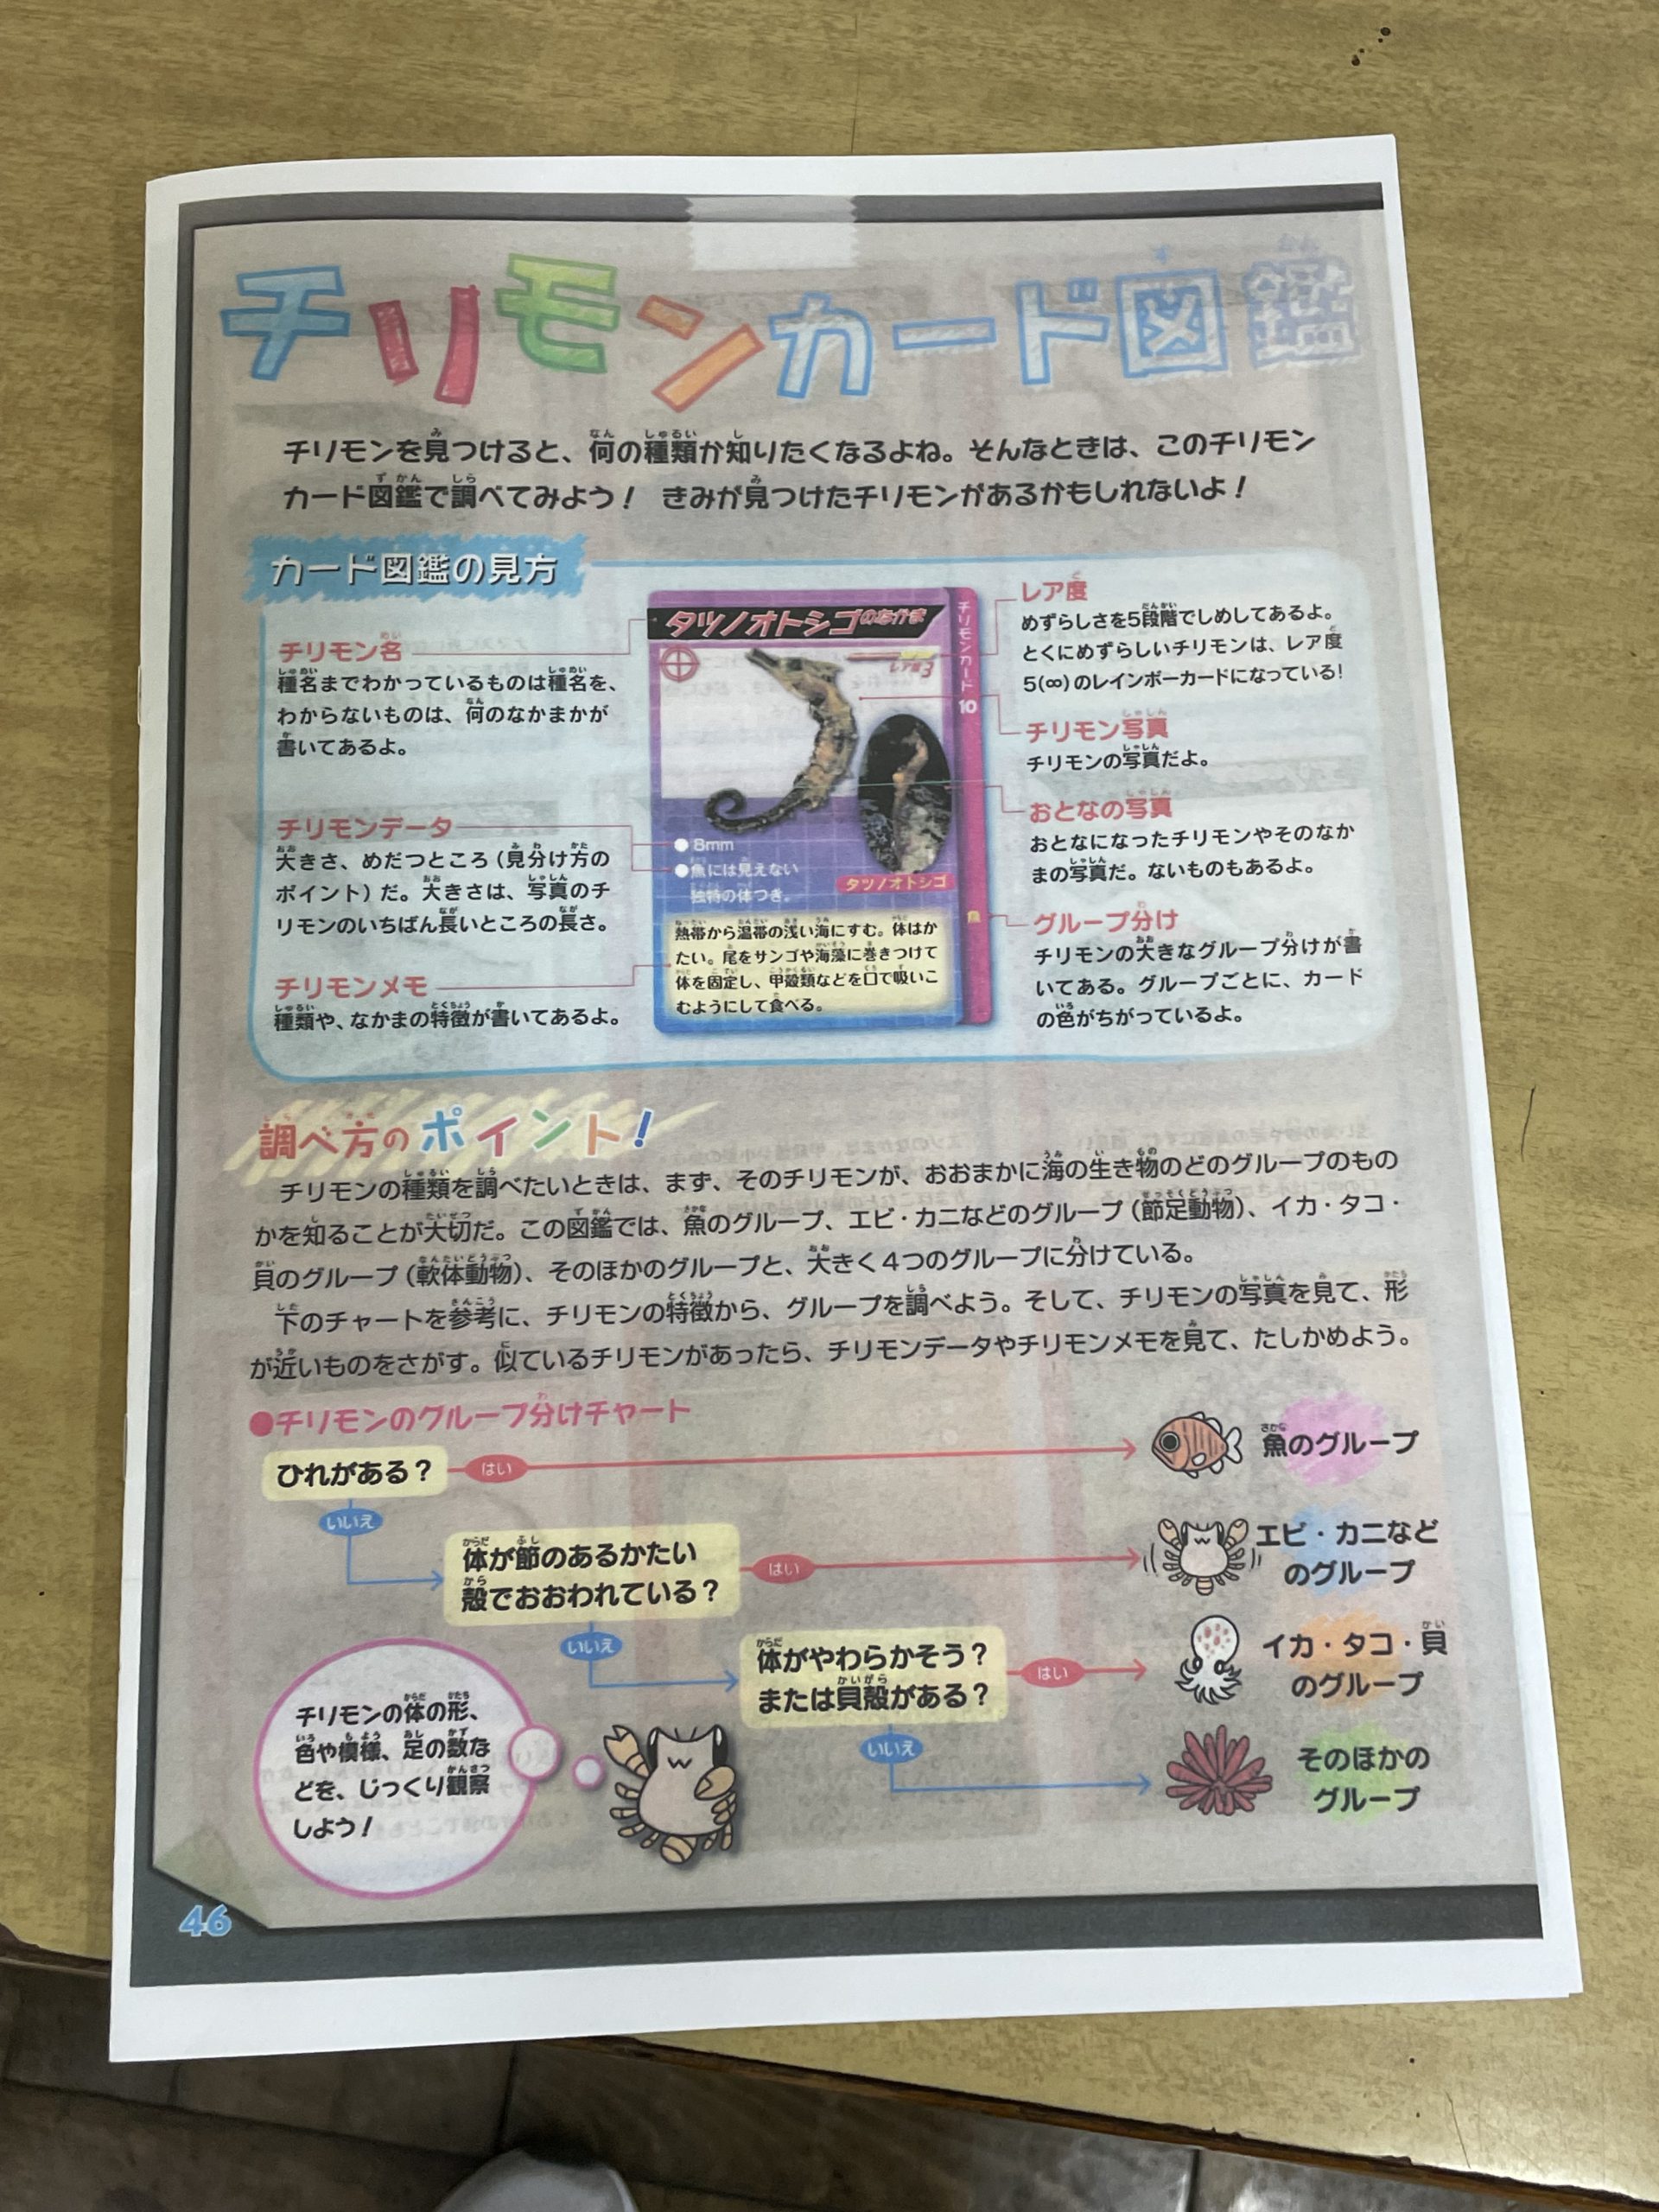 チリモンカード図鑑
チリモンを見つけると、何の種類か知りたくなるよね。そんなときは、このチリモン
カード図鑑で調べてみよう！ きみが見つけたチリモンがあるかもしれないよ！
カード図鑑の見方
チリモン名
種名までわかっているものは種名を、
わからないものは、何のなかまかが
書いてあるよ。
チリモンデータ
大きさ、めだつところ（見分け方の
ポイント）だ。大きさは、写真のチ
リモンのいちばん長いところの長さ。
チリモンメモ
種類や、なかまの特徴が書いてあるよ。
タツノオトシゴのなかま
レア度3
チリモンカード 10
●8mm
●魚には見えない
独特の体つき。
タツノオトシゴ
魚
熱帯から温帯の浅い海にすむ。体はか
たい。尾をサンゴや海藻に巻きつけて
体を固定し、甲殻類などを口で吸いこ
むようにして食べる。
レア度
めずらしさを5段階でしめしてあるよ。
とくにめずらしいチリモンは、レア度
5(∞)のレインボーカードになっている！
チリモン写真
チリモンの写真だよ。
おとなの写真
おとなになったチリモンやそのなか
まの写真だ。ないものもあるよ。
グループ分け
チリモンの大きなグループ分けが書
いてある。グループごとに、カード
の色がちがっているよ。
調べ方のポイント！
チリモンの種類を調べたいときは、まず、そのチリモンが、おおまかに海の生き物のどのグループのもの
かを知ることが大切だ。この図鑑では、魚のグループ、エビ・カニなどのグループ（節足動物）、イカ・タコ・
貝のグループ（軟体動物）、そのほかのグループと、大きく4つのグループに分けている。
下のチャートを参考に、チリモンの特徴から、グループを調べよう。そして、チリモンの写真を見て、形
が近いものをさがす。似ているチリモンがあったら、チリモンデータやチリモンメモを見て、たしかめよう。
●チリモンのグループ分けチャート
ひれがある？
はい
魚のグループ
いいえ
体が節のあるかたい
殻でおおわれている？
はい
エビ・カニなど
のグループ
いいえ
体がやわらかそう？
または貝殻がある？
はい
イカ・タコ・貝
のグループ
いいえ
そのほかの
グループ
チリモンの体の形、
色や模様、足の数な
どを、じっくり観察
しよう！
46